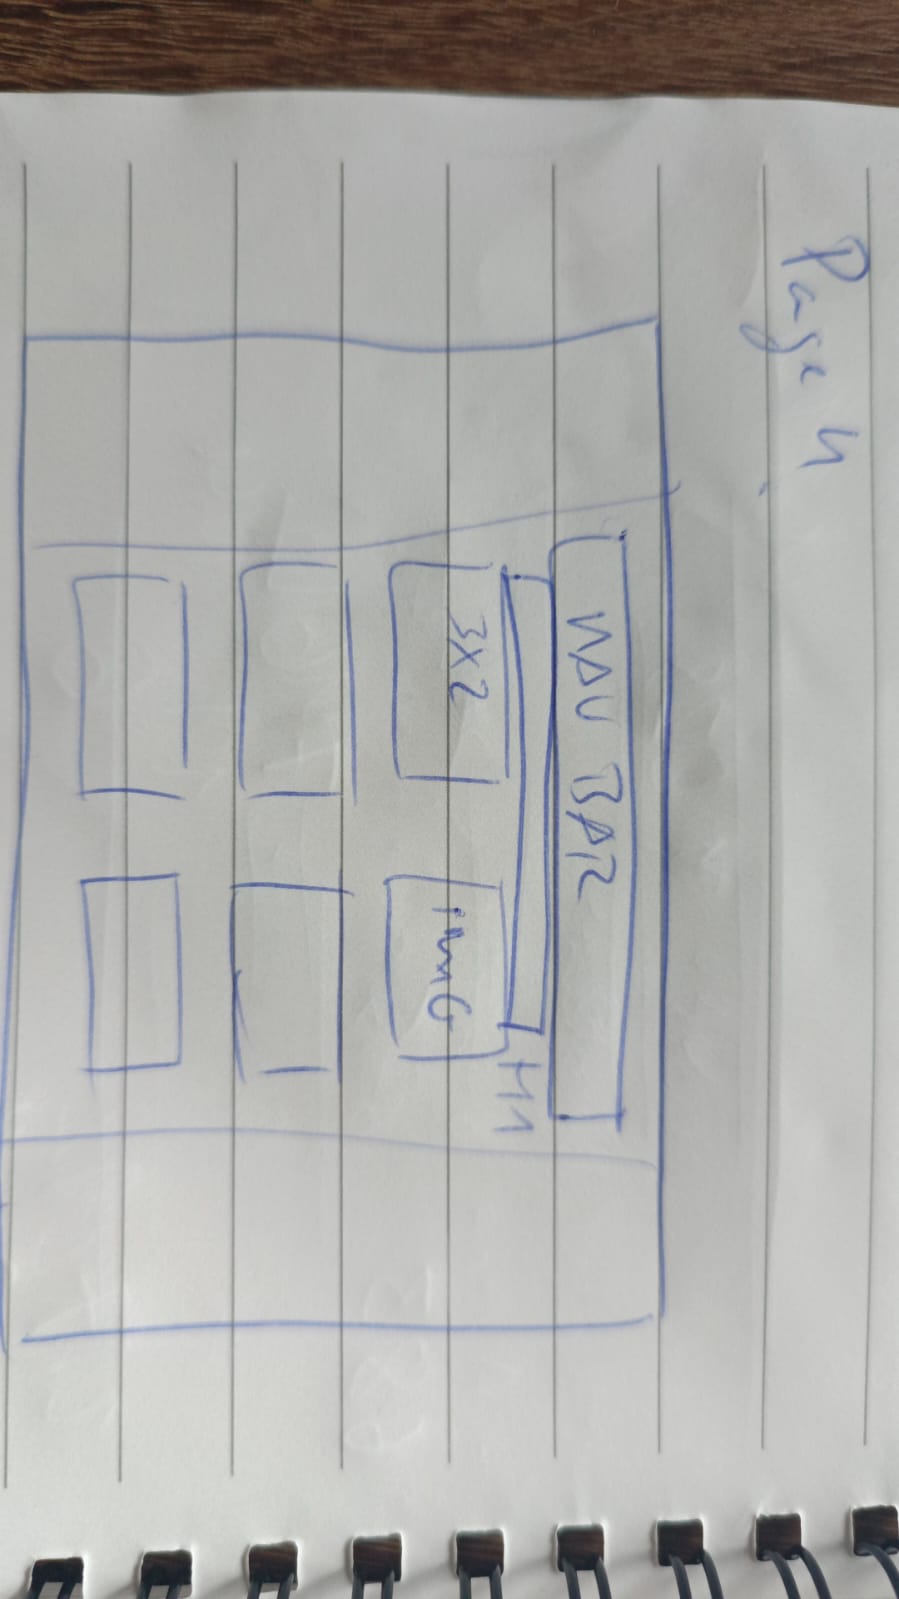 Page 4
NAV BAR
H1
3X2
IMG